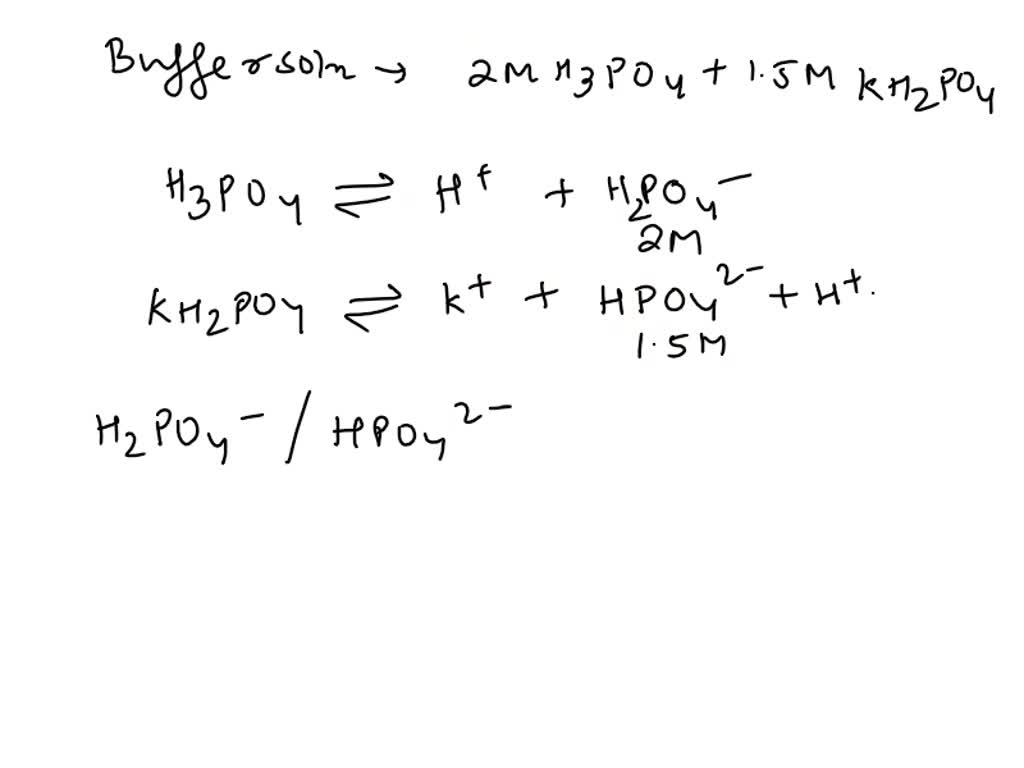 Buffer soln → 2M H3PO4 + 1.5M KH2PO4
H3PO4 ⇌ H+ + H2PO4−
2M
KH2PO4 ⇌ K+ + HPO4 2− + H+.
1.5M
H2PO4− / HPO4 2−